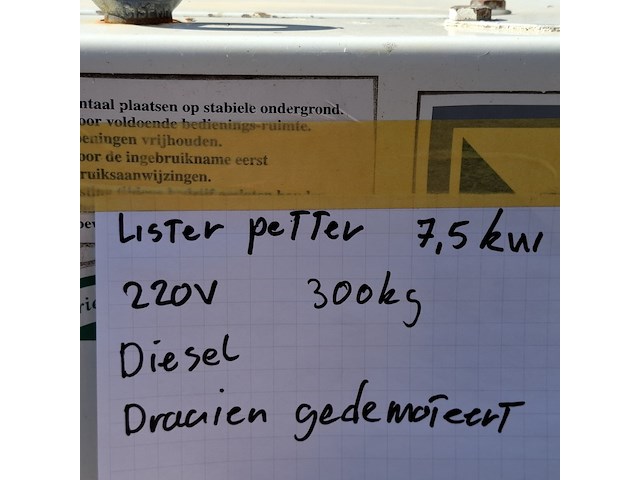 ntaal plaatsen op stabiele ondergrond.
oor voldoende bedienings-ruimte.
eningen vrijhouden.
oor de ingebruikname eerst
ruiksaanwijzingen.
Lister petter 7,5 kw
220V 300kg
Diesel
Draaien gedemoteert